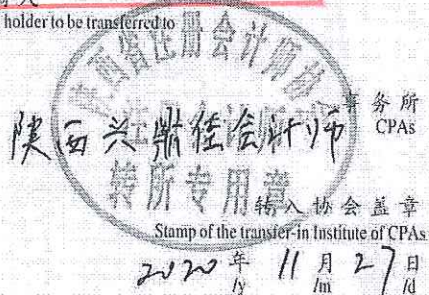 holder to be transferred to
陕西省注册会计师协
陕西兴 佳会计师
事务所
CPAs
转所专用章
转入协会盖章
Stamp of the transfer-in Institute of CPAs
2020年 11月27日
/y /m /d